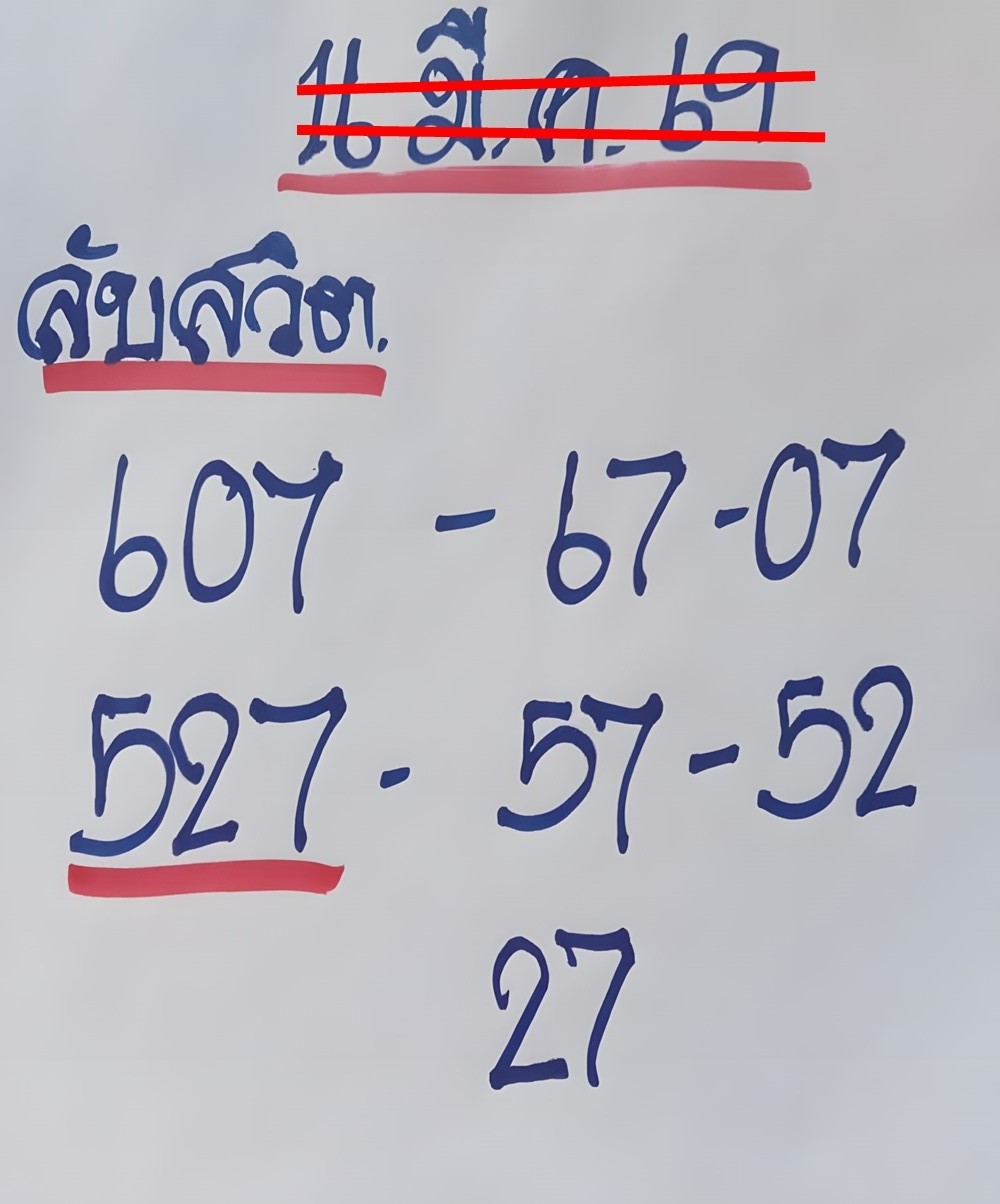 16 มี.ค. 69
ลับสวิต.
607 - 67 - 07
527 - 57 - 52
27